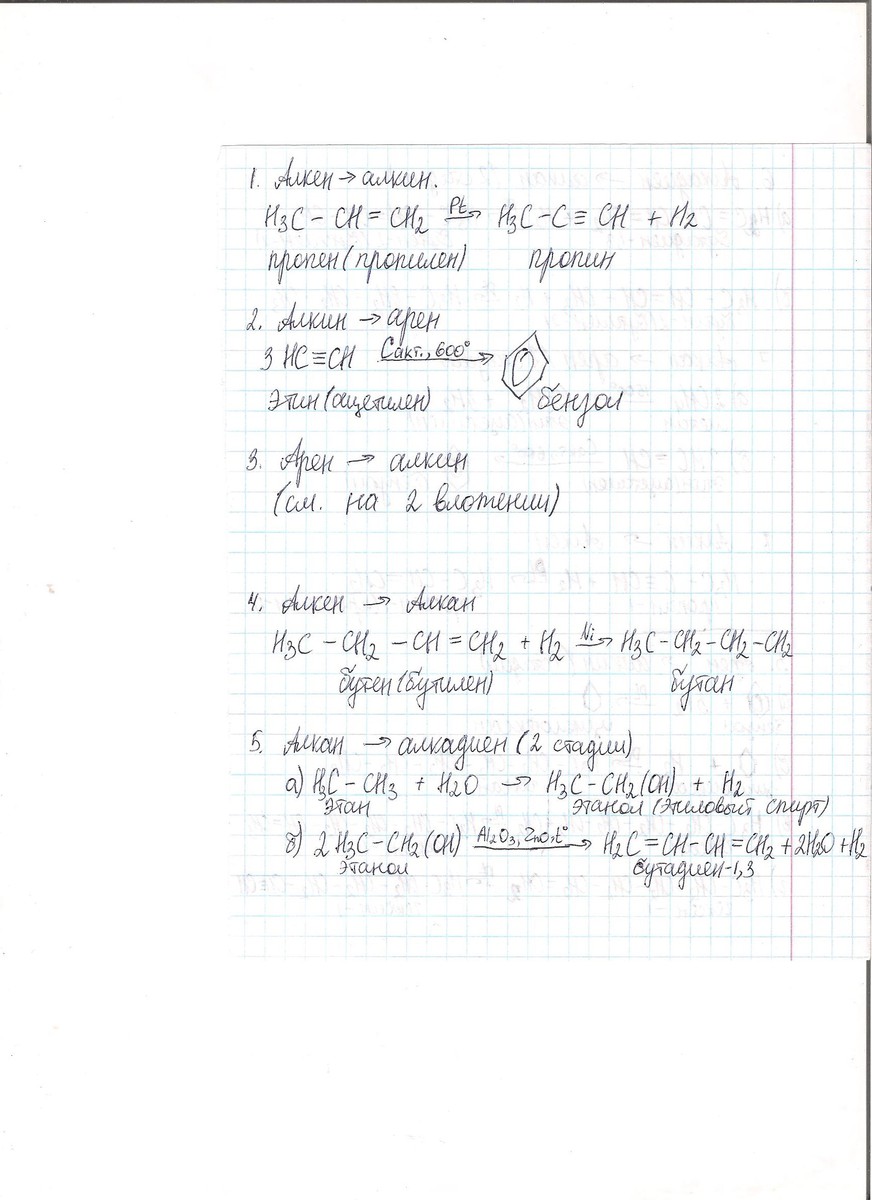 1. Алкен → алкин.
H₃C – CH = CH₂ Pt→ H₃C – C ≡ CH + H₂
пропен (пропилен) пропин
2. Алкин → арен
3 HC≡CH Cакт., 600° → бензол
Этин (ацетилен)
3. Арен → алкин
(см. на 2 вложении)
4. Алкен → Алкан
H₃C – CH₂ – CH = CH₂ + H₂ Ni→ H₃C – CH₂ – CH₂ – CH₂
бутен (бутилен) бутан
5. Алкан → алкадиен (2 стадии)
а) H₃C – CH₃ + H₂O → H₃C – CH₂(OH) + H₂
Этан этанол (Этиловый спирт)
б) 2 H₃C – CH₂(OH) Al₂O₃, ZnO, t° → H₂C = CH – CH = CH₂ + 2H₂O + H₂
Этанол бутадиен-1,3